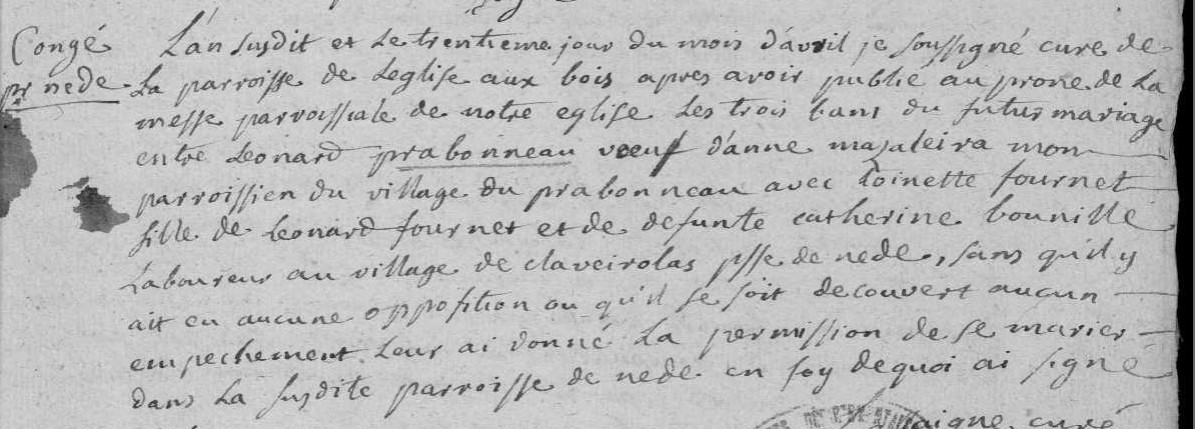 Congé
pr nede.
L'an susdit et le trentieme jour du mois d'avril je soussigné curé de
La parroisse de Leglise aux bois apres avoir publié au prone de La
messe parroissiale de notre eglise Les trois bans du futur mariage
entre Leonard prabonneau vœuf d'anne majaleira mon
parroissien du village du prabonneau avec Toinette fournet
fille de Leonard fournet et de defunte catherine bounille
Laboureur au village de claveirolas psse de nede, sans qu'il y
ait eu aucune opposition ou qu'il se soit decouvert aucun
empechement Leur ai donné La permission de se marier
dans La susdite parroisse de nede en foy dequoi ai signé
curé